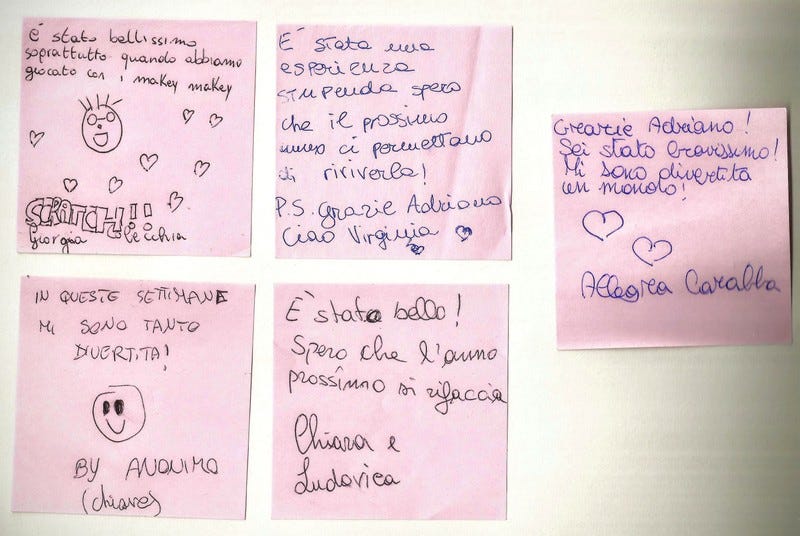 È stato bellissimo
soprattutto quando abbiamo
giocato con i makey makey
SCRATCH!!
Giorgia
E' stata una
esperienza
stupenda spero
che il prossimo
anno ci permettano
di riviverla!
P.S. grazie Adriano
Ciao Virginia
Grazie Adriano!
Sei stato bravissimo!
Mi sono divertita
un mondo!
Allegra Carabba
IN QUESTE SETTIMANE
MI SONO TANTO
DIVERTITA!
BY ANONIMO
E' stato bello!
Spero che l'anno
prossimo si rifaccia
Chiara e
Ludovica